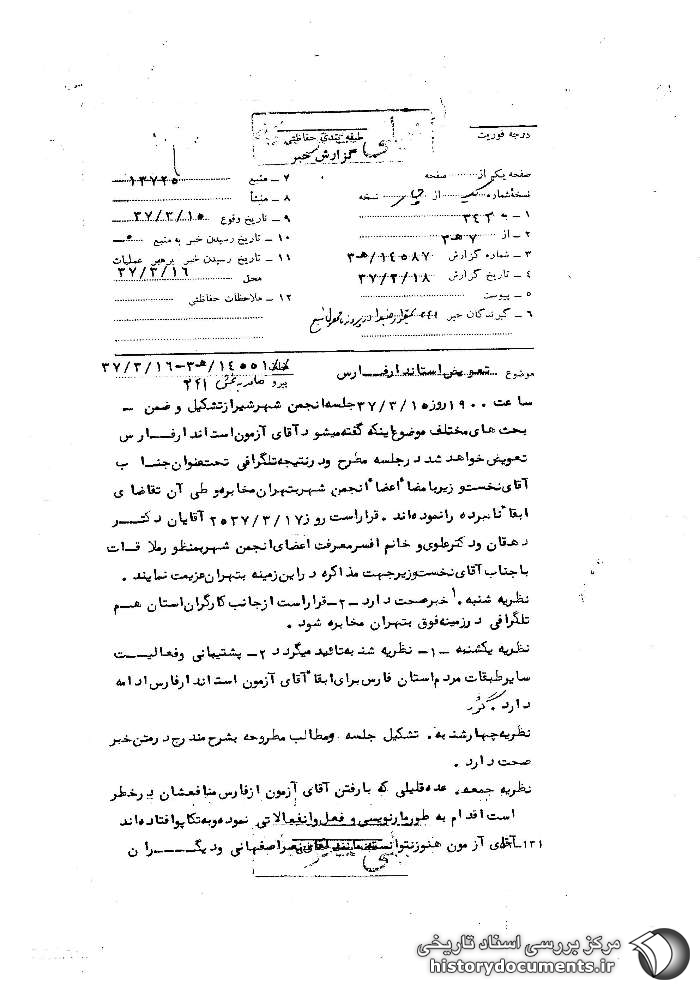 درجه فوریت
طبقه بندی حفاظتی
گزارش خبر
صفحه یکی از صفحه
نسخه شماره یک از چهار نسخه
۱ -
۲ - از ۷ هـ ۳
۳ - شماره گزارش ۱۴۵۸۷/هـ ۳
۴ - تاریخ گزارش ۳۷/۳/۱۸
۵ - پیوست
۶ - گیرندگان خبر
۷ - منبع ۱۳۷۲۵
۸ - منشأ
۹ - تاریخ وقوع ۳۷/۳/۱۵
۱۰ - تاریخ رسیدن خبر به منبع
۱۱ - تاریخ رسیدن خبر برهبر عملیات
محل ۳۷/۳/۱۶
۱۲ - ملاحظات حفاظتی
موضوع تعویض استاندار فارس
۱۴۵۵۱/هـ ۳-۳۷/۳/۱۶
پیرو ۳۴۱
ساعت ۱۹۰۰ روز ۳۷/۳/۱۵ جلسه انجمن شهر شیراز تشکیل و ضمن -
بحث های مختلف موضوع اینکه گفته میشود آقای آزمون استاندار فارس
تعویض خواهد شد در جلسه مطرح و در نتیجه تلگرافی تحت عنوان جناب
آقای نخست وزیر با مضاء اعضاء انجمن شهر بتهران مخابره و طی آن تقاضای
ابقاء نامبرده را نموده اند . قرار است روز ۲۵۳۷/۳/۱۷ آقایان دکتر
دهقان و دکتر علوی و خانم افسر معرفت اعضای انجمن شهر بمنظور ملاقات
با جناب آقای نخست وزیر جهت مذاکره در این زمینه بتهران عزیمت نمایند .
نظریه شنبه . ۱ خبر صحت دارد - ۲ - قرار است از جانب کارگران استان هم
تلگرافی در زمینه فوق بتهران مخابره شود .
نظریه یکشنبه - ۱ - نظریه شنبه تائید میگردد ۲ - پشتیبانی و فعالیت
سایر طبقات مردم استان فارس برای ابقاء آقای آزمون استاندار فارس ادامه
دارد .
نظریه چهارشنبه . تشکیل جلسه و مطالب مطروحه بشرح مندرج در متن خبر
صحت دارد .
نظریه جمعه . عده قلیلی که با رفتن آقای آزمون از فارس منافعشان در خطر
است اقدام به طومار نویسی و فعل و انفعالاتی نموده و به تکاپو افتاده اند
۱۳۱ - آقای آزمون هنوز نتوانسته مانند آقای نصر اصفهانی و دیگران
مرکز بررسی اسناد تاریخی
historydocuments.ir